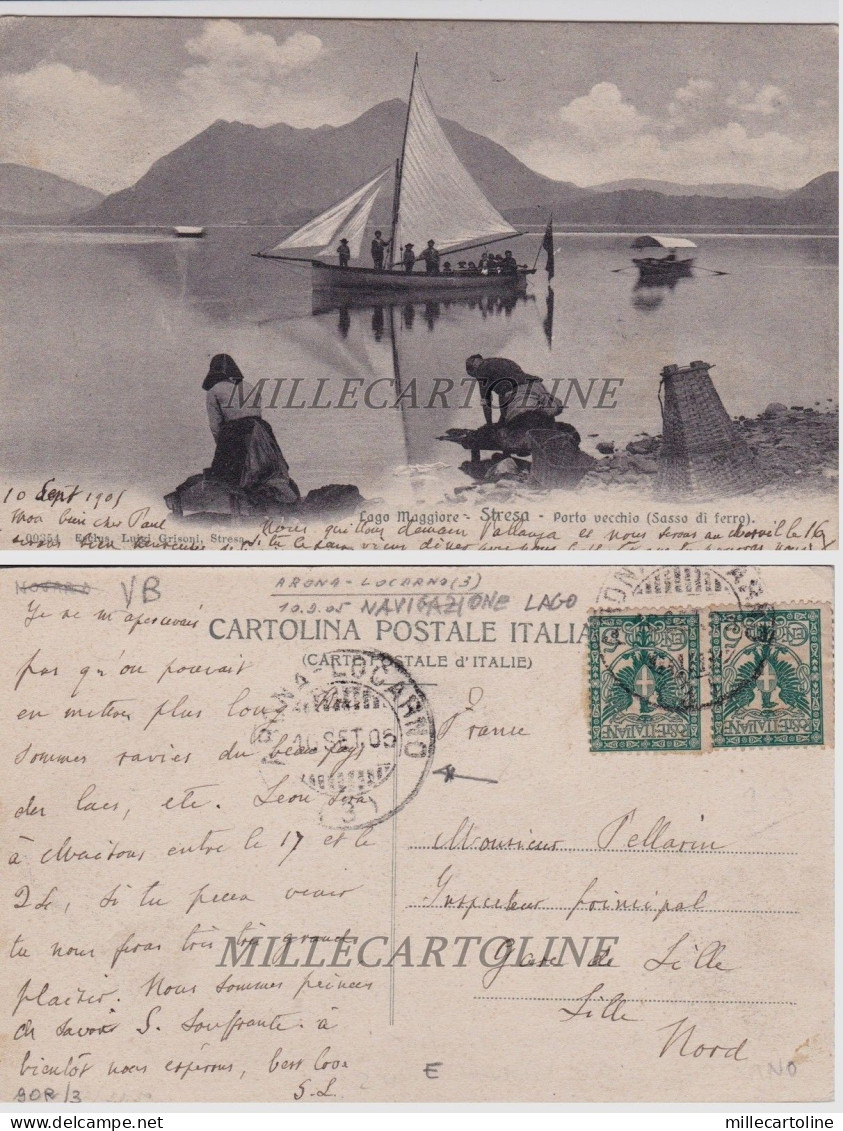 MILLECARTOLINE
10 Sept 1905
Lago Maggiore - Stresa - Porto vecchio (Sasso di ferro).
Mon bien cher Paul
Nous quittons demain Pallanza et nous serons au le 16
Luigi Grisoni, Stresa
VB
ARONA-LOCARNO (3)
10.9.05 NAVIGAZIONE LAGO
CARTOLINA POSTALE ITALIA
(CARTE POSTALE d'ITALIE)
ARONA-LOCARNO
10 SET 05
(3)
POSTE ITALIANE
POSTE ITALIANE
Je ne m'apercevais
pas qu'on pouvait
en mettre plus long
sommes ravies du beau pays
des lacs, etc. Leon sera
à entre le 17 et le
24, si tu peux venir
tu nous feras très très grand
plaisir. Nous sommes peinées
de savoir S. souffrante. à
bientôt nous espérons, best love
S.L.
France
Monsieur Pellarin
Inspecteur principal
Gare de Lille
Lille
Nord
MILLECARTOLINE
90R/3
E
NO
millecartoline